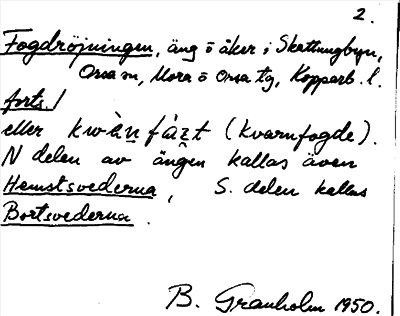 2.
Fogdröjningen, äng o åker i Skattungbyn,
Orsa sn, Mora o Orsa tg, Kopparb. l.
forts./
eller kwàn̥fàzt (kvarnfogde).
N delen av ängen kallas även
Hemstsvederna, S. delen kallas
Bortsvederna.
B. Granholm 1950.